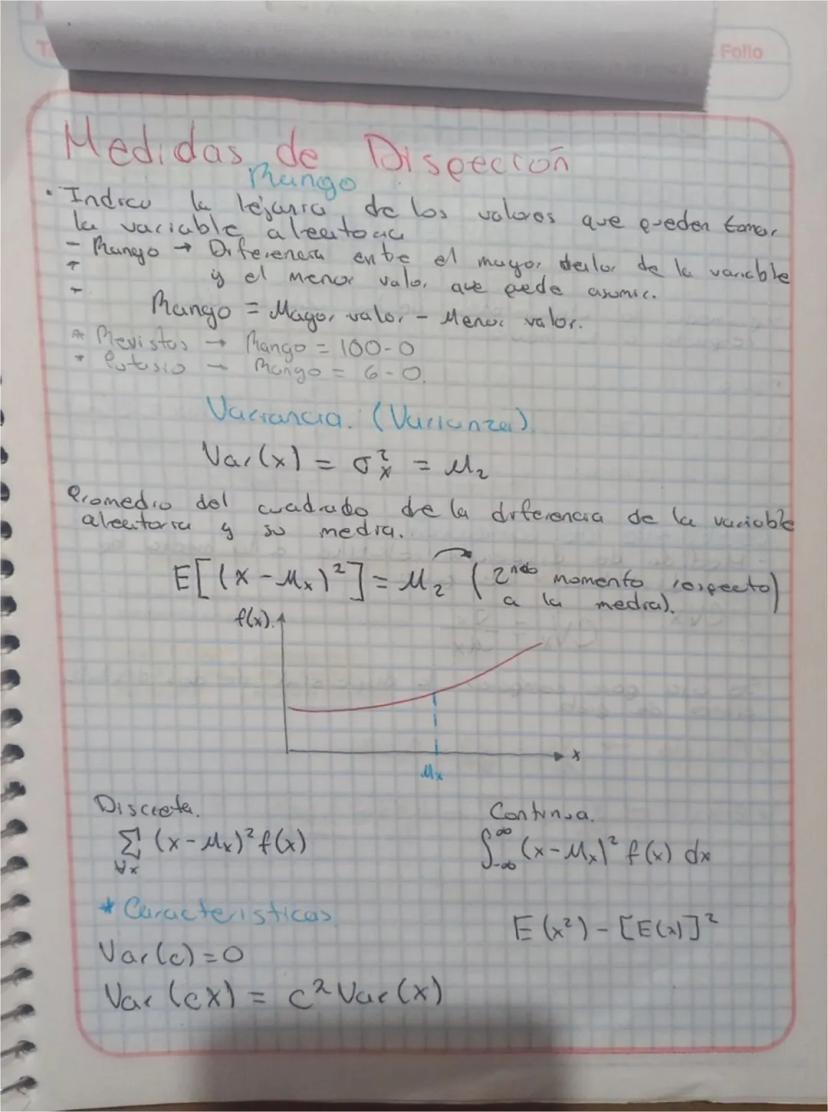 Folio
Medidas de Dispeción
Rango
• Indica la lejanía de los valores que pueden tomar
la variable aleatoria
- Rango → Diferencia entre el mayor valor de la variable
y el menor valor que pede asumir.
Rango = Mayor valor - Menor valor.
* Revistas → Rango = 100-0
* Potasio → Rango = 6-0.
Variancia. (Varianza)
Var(x) = σ²ₓ = μ₂
Promedio del cuadrado de la diferencia de la variable
aleatoria y su media.
E[(x-μₓ)²] = μ₂ (2ndo momento respecto
a la media).
f(x)
x
μₓ
Discreta.
Continua.
∑∀x (x-μₓ)² f(x)
∫-∞^∞ (x-μₓ)² f(x) dx
* Caracteristicas
E(x²) - [E(x)]²
Var(c) = 0
Var(cX) = c² Var(x)